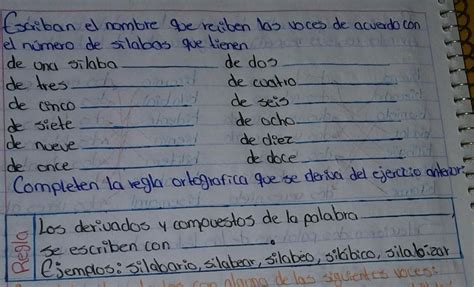 Escriban el nombre que reciben las voces de acuerdo con
el número de sílabas que tienen
de una sílaba ________ de dos ________
de tres ________ de cuatro ________
de cinco ________ de seis ________
de siete ________ de ocho ________
de nueve ________ de diez ________
de once ________ de doce ________
Completen la regla ortografica que se deriva del ejercicio anterior.
Regla
Los derivados y compuestos de la palabra ________,
se escriben con ________.
Ejemplos: silabario, silabear, silabeo, silábico, silabizar
con alguna de las siguientes voces: